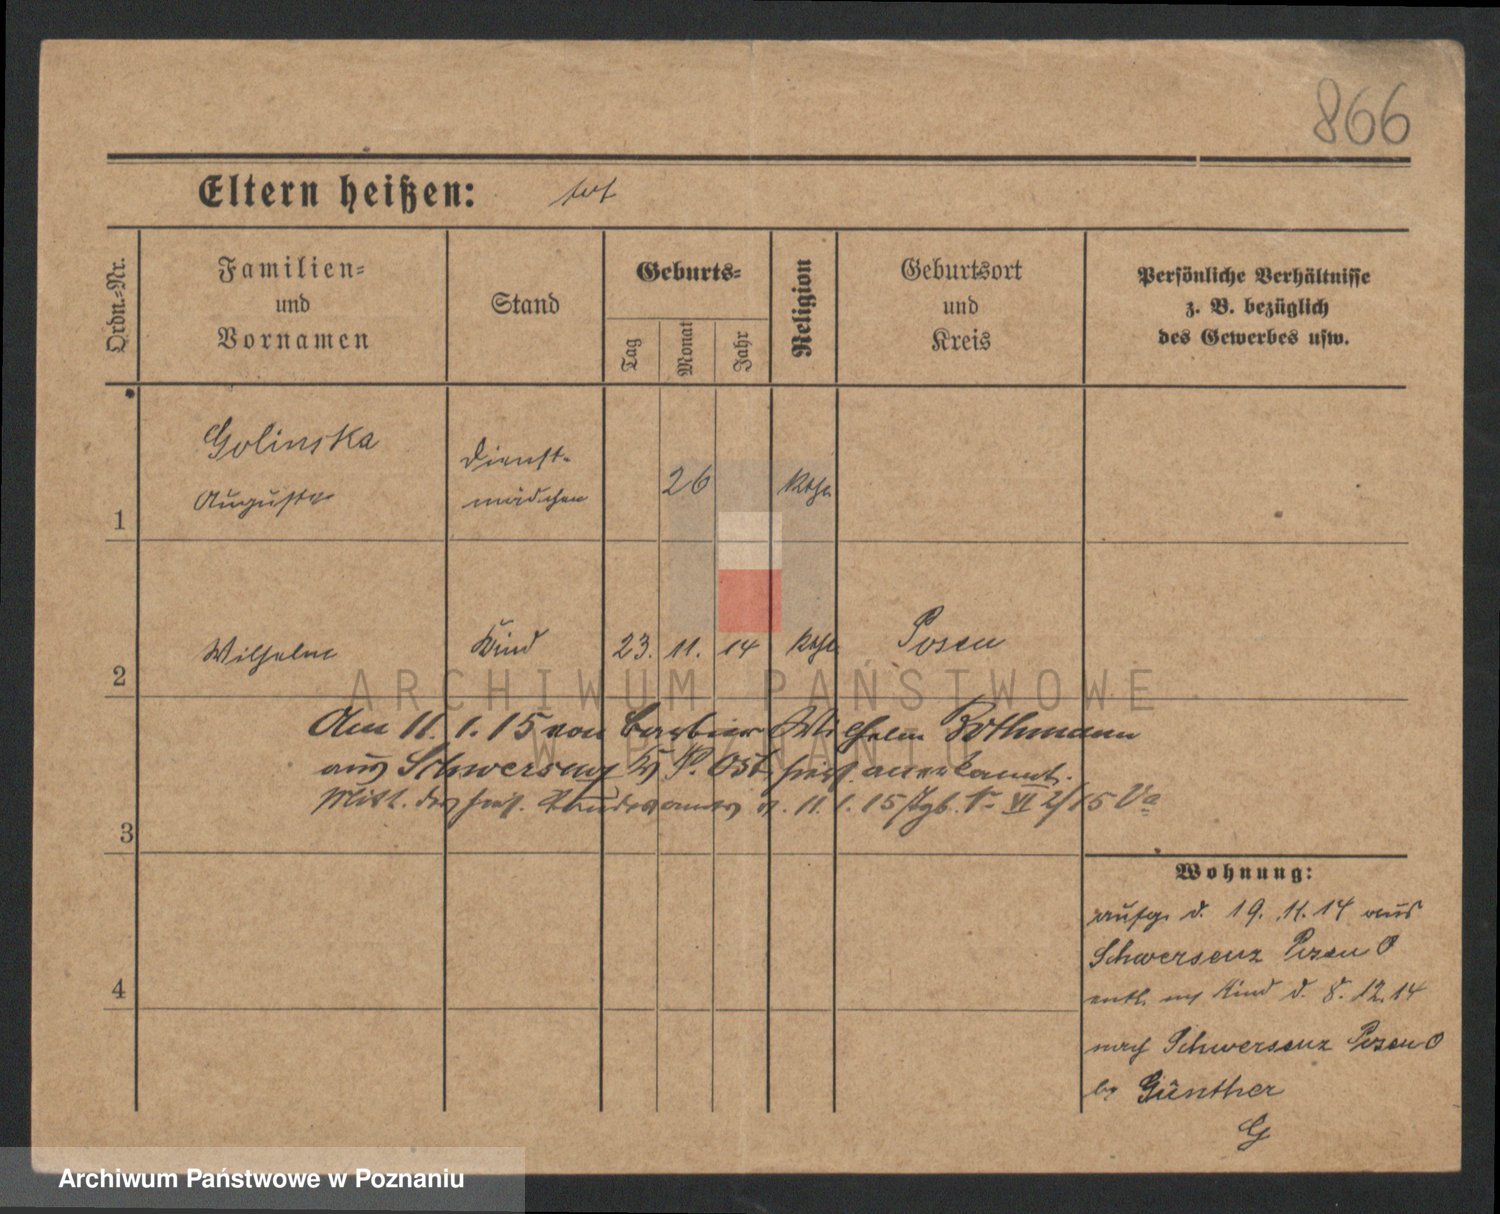 866
Eltern heißen: tot
Ordn.-Nr.
Familien-
und
Vornamen
Stand
Geburts-
Tag
Monat
Jahr
Religion
Geburtsort
und
Kreis
Persönliche Verhältnisse
z. B. bezüglich
des Gewerbes usw.
1
Golinska
Auguste
Dienst-
mädchen
26
kth.
2
Wilhelm
Kind
23. 11. 14
kth.
Posen
ARCHIWUM PAŃSTWOWE
W POZNANIU
Am 11. 1. 15 von Barbier Wilhelm Bothmann
aus Schwersenz Kr. P. Ost hier anerkannt.
Mitt. des hies. Standesamtes v. 11. 1. 15 Tgb. Nr VI 2/15 Va
3
4
Wohnung:
aufg. d. 19. 11. 14 aus
Schwersenz Posen O
entl. m Kind d. 8. 12. 14
nach Schwersenz Posen O
bei Günther
G
Archiwum Państwowe w Poznaniu